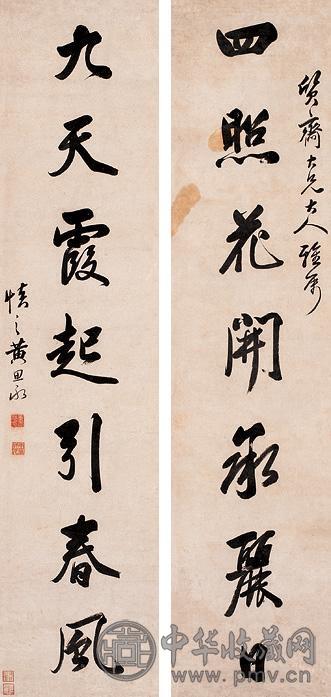 四照花開承麗日
質齋大兄大人雅屬
九天霞起引春風
慎之黄思永
中华收藏网
www.pmv.cn